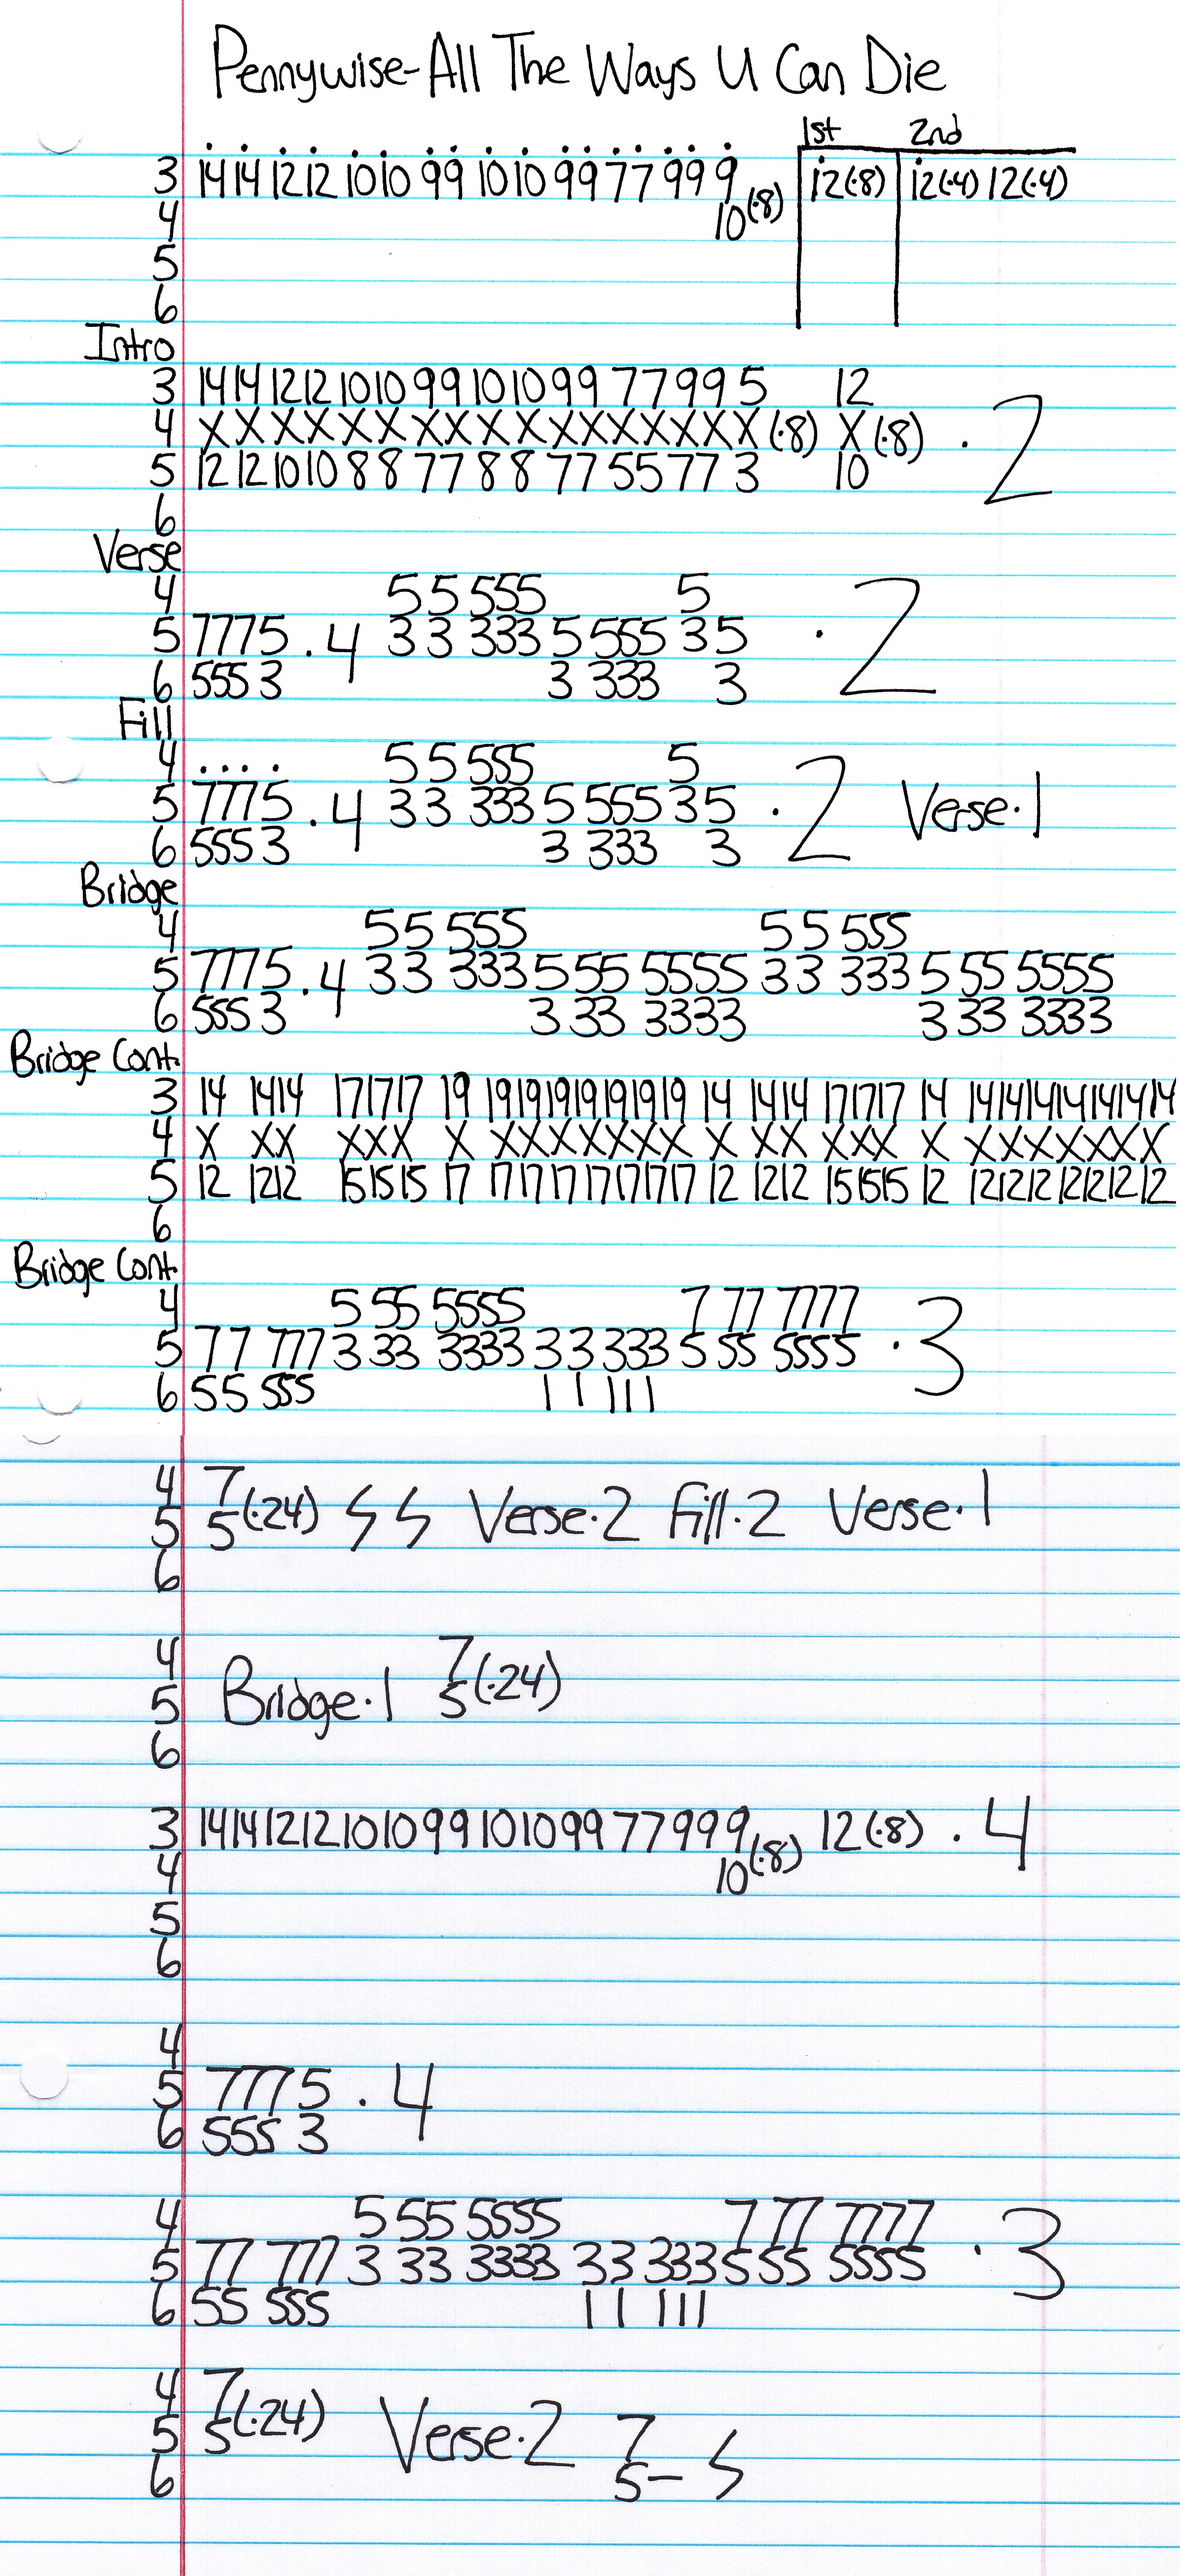 Pennywise-All The Ways U Can Die
1st 2nd
3 14 14 12 12 10 10 9 9 10 10 9 9 7 7 9 9 9 12(·8) 12(·4) 12(·4)
4 10(·8)
5
6
Intro
3 14 14 12 12 10 10 9 9 10 10 9 9 7 7 9 9 5 12
4 X X X X X X X X X X X X X X X X X (·8) X (·8) · 2
5 12 12 10 10 8 8 7 7 8 8 7 7 5 5 7 7 3 10
6
Verse
4 5 5 555 5
5 7775 · 4 3 3 333 5 555 3 5 · 2
6 555 3 3 333 3
Fill
4 .... 5 5 555 5
5 7775 · 4 3 3 333 5 555 3 5 · 2 Verse·1
6 555 3 3 333 3
Bridge
4 5 5 555 5 5 555
5 7775 · 4 3 3 333 5 55 5555 3 3 333 5 55 5555
6 555 3 3 33 3333 3 33 3333
Bridge Cont.
3 14 14 14 17 17 17 19 19 19 19 19 19 19 19 14 14 14 17 17 17 14 14 14 14 14 14 14 14
4 X XX XXX X XXXXXXX X XX XXX X XXXXXXX
5 12 12 12 15 15 15 17 17 17 17 17 17 17 17 12 12 12 15 15 15 12 12 12 12 12 12 12 12
6
Bridge Cont.
4 5 55 5555 7 77 7777
5 77 777 3 33 3333 33 333 5 55 5555 · 3
6 55 555 11 111
4 7
5 5(·24) Verse·2 Fill·2 Verse·1
6
4 7
5 Bridge·1 5(·24)
6
3 14 14 12 12 10 10 9 9 10 10 9 9 7 7 9 9 9 12(·8) · 4
4 10(·8)
5
6
4
5 7775 · 4
6 555 3
4 5 55 5555 7 77 7777
5 77 777 3 33 3333 33 333 5 55 5555 · 3
6 55 555 11 111
4 7
5 5(·24) Verse·2 7
6 5–